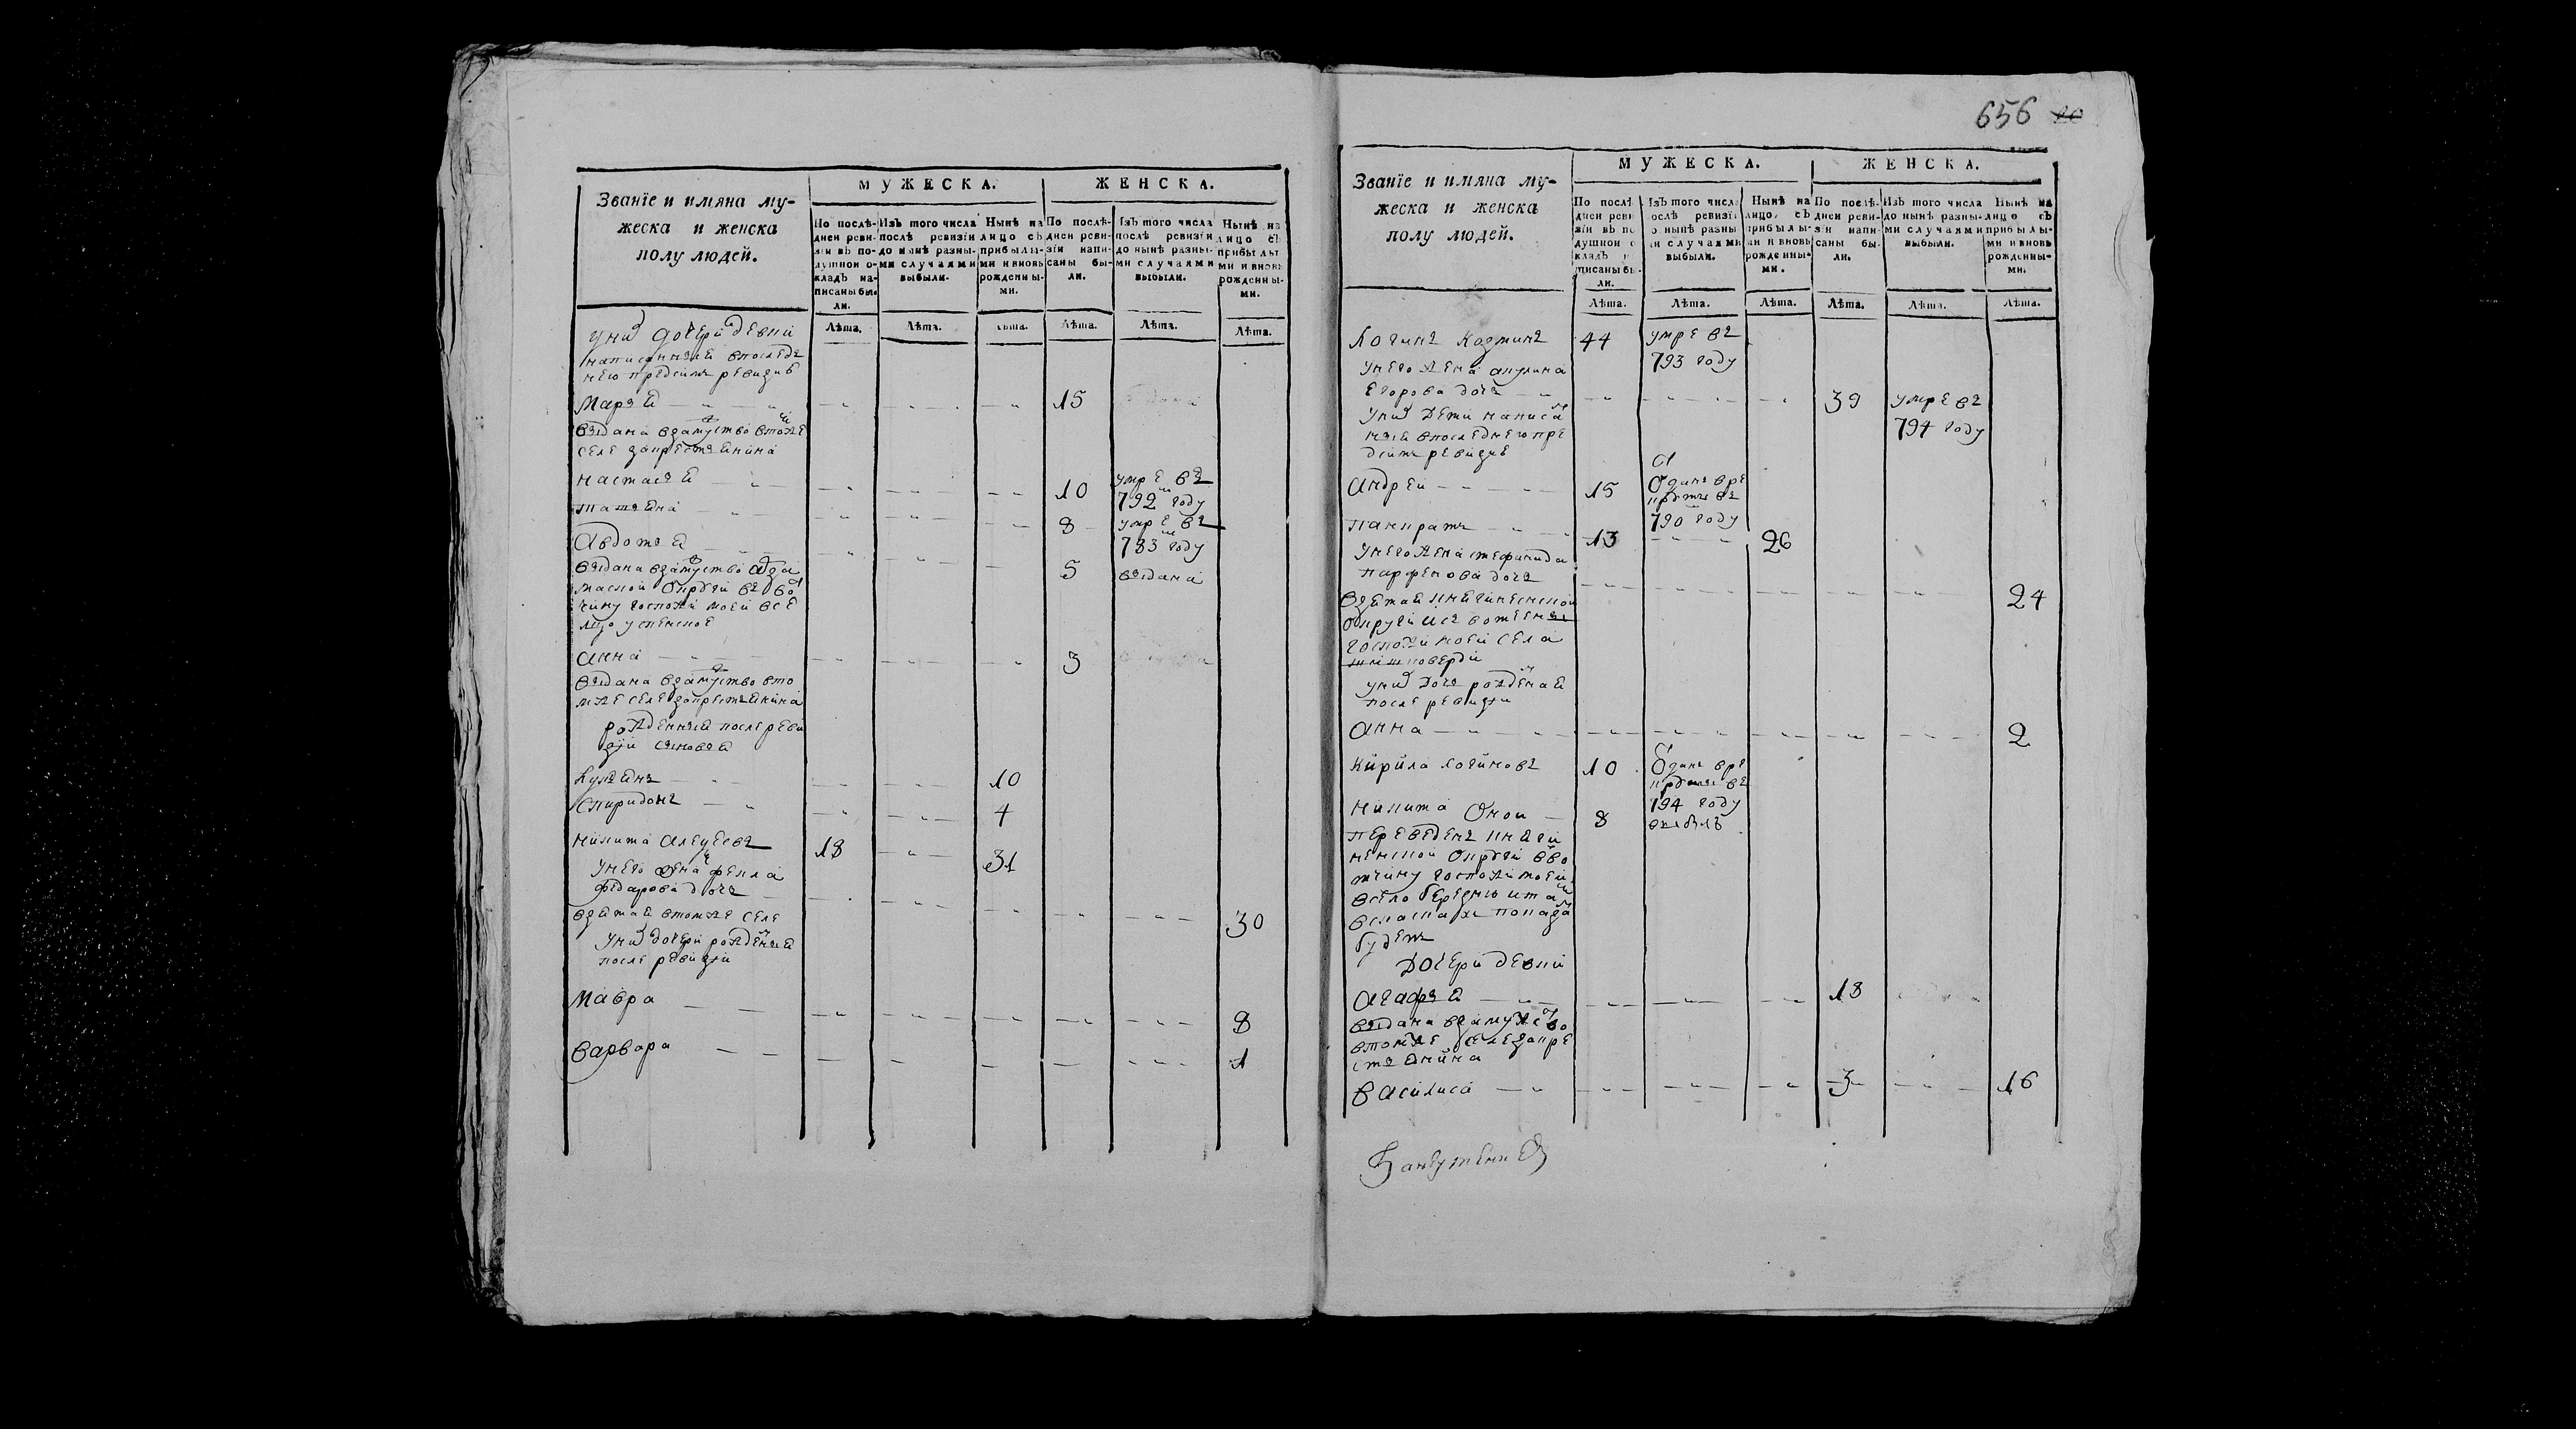 656 20
Званїе и имяна му-
жеска и женска
полу людей.
МУЖЕСКА.
ЖЕНСКА.
По послѣ-
дней реви-
зїи въ по-
душной о-
кладъ на-
писаны бы-
ли.
Изъ того числа
послѣ ревизїи
до нынѣ разны-
ми случаями
выбыли.
Нынѣ на
лицо съ
прибылы-
ми и вновь
рожденны-
ми.
По послѣ-
дней реви-
зїи напи-
саны бы-
ли.
Изъ того числа
послѣ ревизїи
до нынѣ разны-
ми случаями
выбыли.
Нынѣ на
лицо съ
прибылы-
ми и вновь
рожденны-
ми.
Лѣта. Лѣта. Лѣта. Лѣта. Лѣта. Лѣта.
уних дочери девки
написанныя впослед
нею пред симъ ревизию
Марья 15
выдана взамуство втомже
селе за крестьянина
настасья 10 умре въ
792 году
татьяна 8 умре въ
783 году
Авдотья 5 выдана
выдана взамуство
округи въ вот
чину госпожи моей все
лцо успенское
анна 3
выдана взамуство вто
мже селе за крестьянина
рожденныя после реви
зии сыновья
Кузьянъ 10
Спиридонъ 4
никита 18 31
унего жена фекла
федарова дочь 30
взятая втомже селе
уних дочери рожденныя
после ревизии
мавра 8
варвара 1
Званїе и имяна му-
жеска и женска
полу людей.
МУЖЕСКА.
ЖЕНСКА.
По послѣ-
дней реви-
зїи въ по-
душной о-
кладъ на-
писаны бы-
ли.
Изъ того числа
послѣ ревизїи
до нынѣ разны-
ми случаями
выбыли.
Нынѣ на
лицо съ
прибылы-
ми и вновь
рожденны-
ми.
По послѣ-
дней реви-
зїи напи-
саны бы-
ли.
Изъ того числа
до нынѣ разны-
ми случаями
выбыли.
Нынѣ на
лицо съ
прибылы-
ми и вновь
рожденны-
ми.
Лѣта. Лѣта. Лѣта. Лѣта. Лѣта. Лѣта.
Логинъ Козминъ 44 умре въ
793 году
унего жена акулина
Егорова дочь 39 умре въ
794 году
уних дети написан
ныя впоследнею пре
дсимъ ревизие
андрей 15 отданъ вре
круты въ
790 году
панкратъ 13 26
унего жена стефанида
парфенова дочь 24
взятая княгининской
округи изъ вотчены
госпожи моей села
уних дочь рожденая
после ревизии
анна 2
Кирила логиновъ 10 отданъ вре
круты въ
794 году
никита Оной 8 выбылъ
переведенъ княги
нинской округи вво
тчину госпожи моей
всело
всказках показан
будетъ
Дочери девки
агафья 18
выдана взамужство
втомже селе за кре
стьянина
василиса 3 16